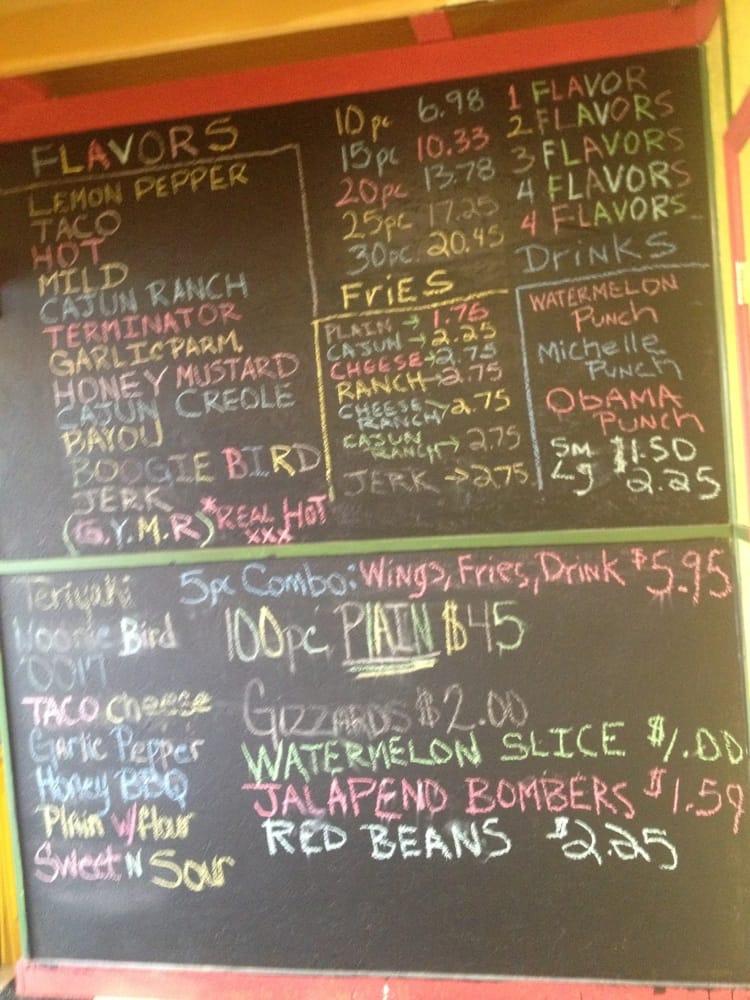 FLAVORS
LEMON PEPPER
TACO
HOT
MILD
CAJUN RANCH
TERMINATOR
GARLIC PARM.
HONEY MUSTARD
CAJUN CREOLE
BAYOU
BOOGIE BIRD
JERK
(G.Y.M.R) *REAL HOT
XXX
10pc 6.98 1 FLAVOR
15pc 10.33 2 FLAVORS
20pc 13.78 3 FLAVORS
25pc 17.25 4 FLAVORS
30pc 20.45 4 FLAVORS
FRIES
PLAIN → 1.76
CAJUN → 2.25
CHEESE → 2.75
RANCH → 2.75
CHEESE RANCH → 2.75
CAJUN RANCH → 2.75
JERK → 2.75
DRINKS
WATERMELON
PUNCH
Michelle
PUNCH
OBAMA
PUNCH
SM $1.50
Lg 2.25
Teriyaki
Bird
TACO Cheese
Garlic Pepper
Honey BBQ
Plain w/flour
Sweet N Sour
5pc Combo: Wings, Fries, Drink $5.95
100pc PLAIN $45
GIZZARDS $2.00
WATERMELON SLICE $1.00
JALAPENO BOMBERS $1.59
RED BEANS $2.25